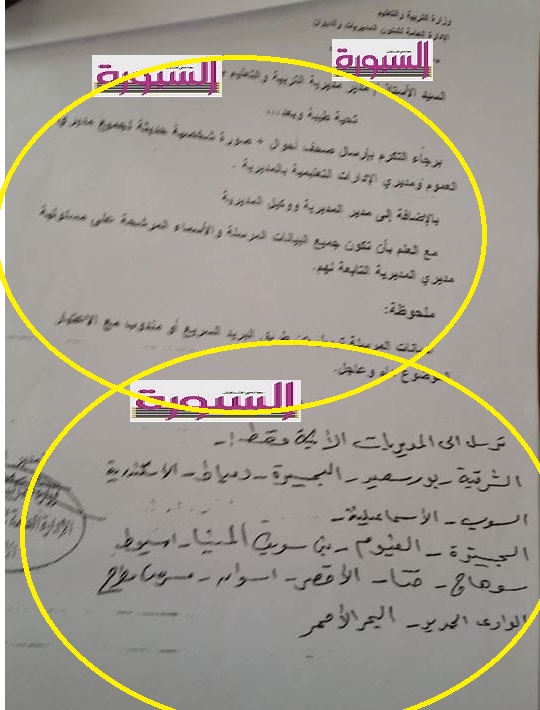 وزارة التربية والتعليم
الإدارة العامة لشئون المديريات والديوان
السبورة
السبورة
السيد الأستاذ / مدير مديرية التربية والتعليم
تحية طيبة وبعد...
برجاء التكرم بإرسال صحف أحوال + صورة شخصية حديثة لجميع مديري
العموم ومديري الإدارات التعليمية بالمديرية .
بالإضافة إلى مدير المديرية ووكيل المديرية
مع العلم بأن تكون جميع البيانات المرسلة والأسماء المرشحة على مسئولية
مديري المديرية التابعة لهم.
ملحوظة:
البيانات المرسلة عن طريق البريد السريع أو مندوب مع الاختيار
الموضوع هام وعاجل.
السبورة
ترسل الى المديريات الآتية فقط :-
الشرقية - بورسعيد - البحيرة - دمياط - الاسكندرية
السويس - الأسماعيلية -
الجيزة - الفيوم - بنى سويف - المنيا - اسيوط
سوهاج - قنا - الأقصر - اسوان - مرسى مطروح
الوادى الجديد - البحر الأحمر